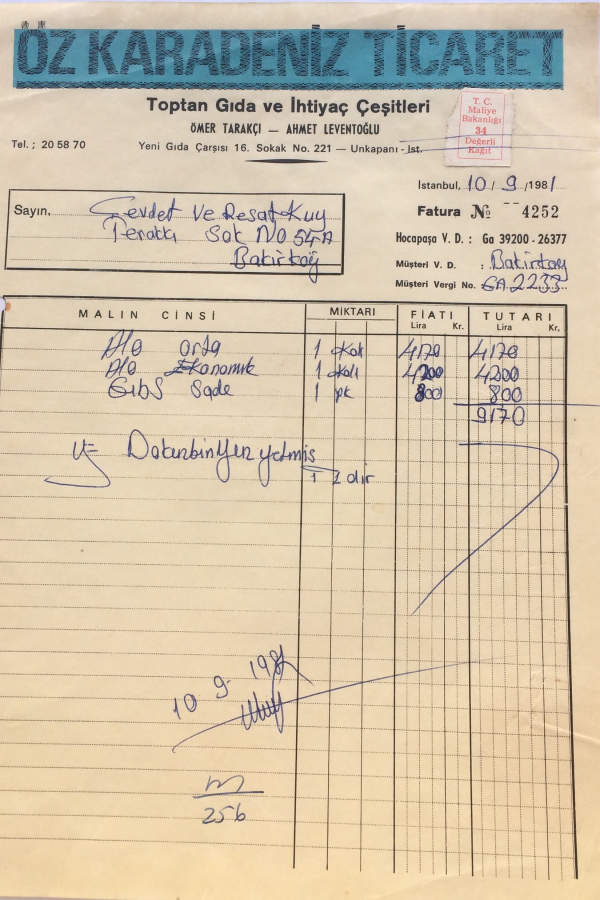 ÖZ KARADENİZ TİCARET
Toptan Gıda ve İhtiyaç Çeşitleri
ÖMER TARAKÇI — AHMET LEVENTOĞLU
Tel. ; 20 58 70
Yeni Gıda Çarşısı 16. Sokak No. 221 — Unkapanı - İst.
T. C.
Maliye
Bakanlığı
34
Değerli
Kağıt
İstanbul, 10 / 9 / 1981
Sayın, Cevdet ve Reşat Kuy
Terakki Sok No 54A
Bakırköy
Fatura № 4252
Hocapaşa V. D. : Ga 39200 - 26377
Müşteri V. D. : Bakırköy
Müşteri Vergi No. GA.2233
MALIN CİNSİ MİKTARI FİATI TUTARI
Lira Kr. Lira Kr.
Alo orta 1 Koli 4170 4170
Alo Ekonomik 1 Koli 4200 4200
Gibs Sade 1 pk 800 800
9170
Y= Dokuzbinyüzyetmiş
dir
10 9 1981
256